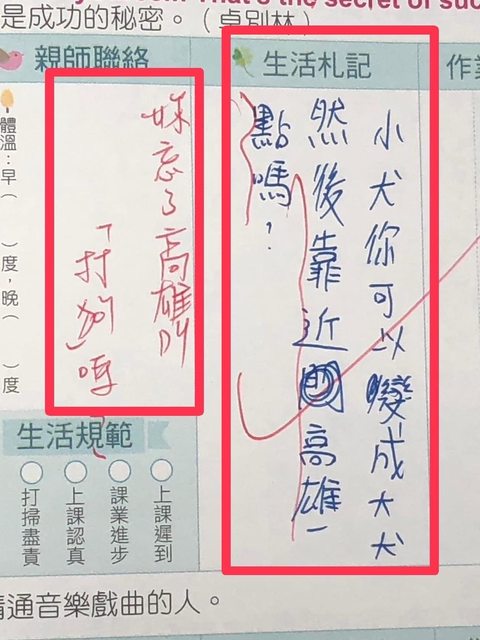 是成功的秘密。（卓別林）
親師聯絡
生活札記
作業
小犬你可以變成大犬
然後靠近高雄一
點嗎？
妳忘了高雄叫
「打狗」嗎？
體溫：早（　　）度，晚（　　）度
生活規範
上課遲到
課業進步
上課認真
打掃盡責
精通音樂戲曲的人。